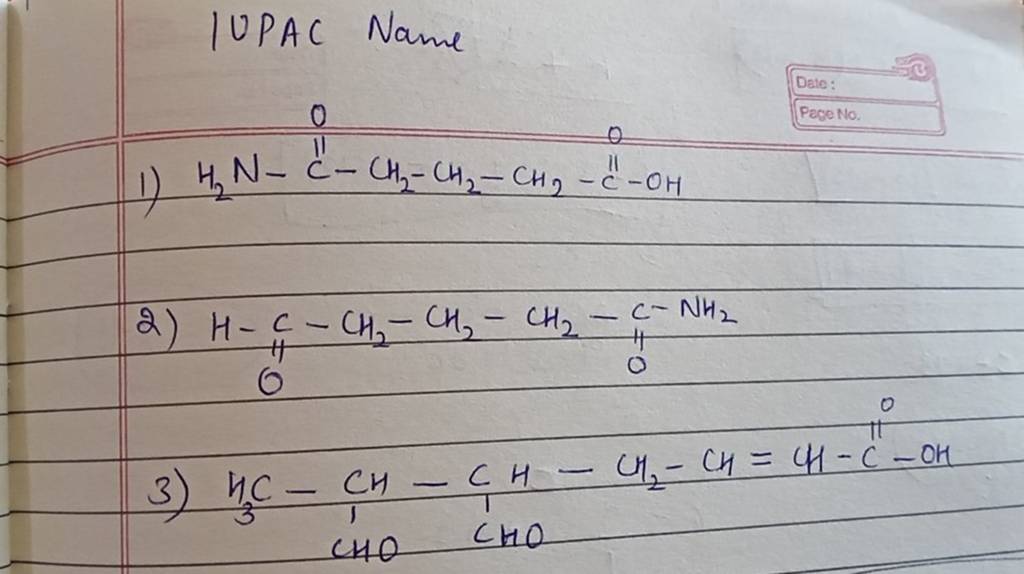 IUPAC Name
Date :
Page No.
O
||
1) H₂N – C – CH₂ – CH₂ – CH₂ – C – OH
O
||
2) H – C – CH₂ – CH₂ – CH₂ – C – NH₂
|| ||
O O
O
||
3) H₃C – CH – CH – CH₂ – CH = CH – C – OH
| |
CHO CHO